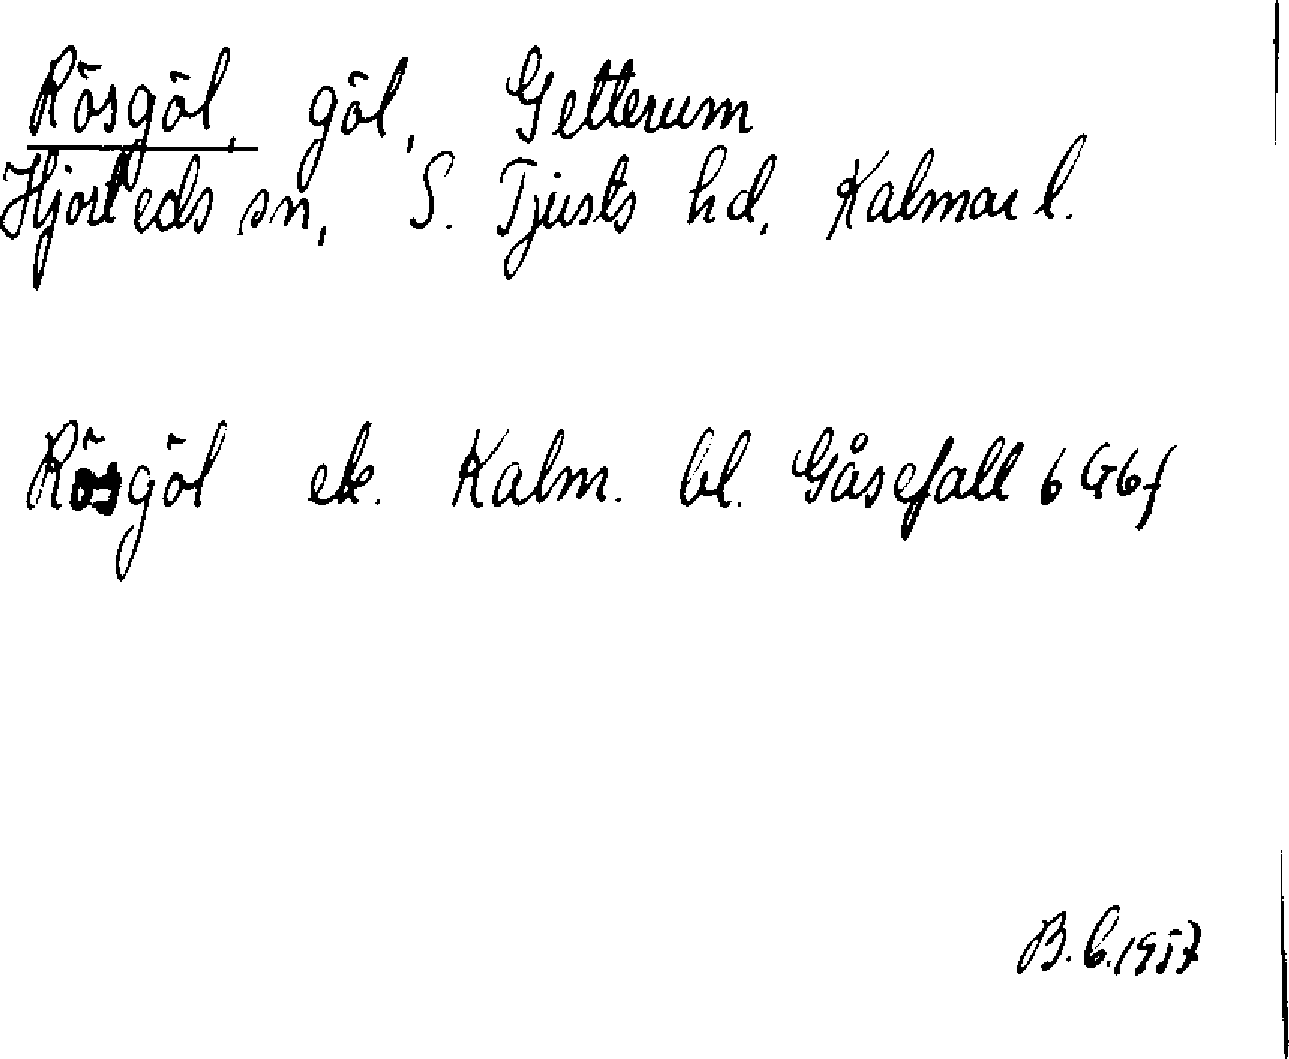 Rösgöl, göl, Getterum
Hjorteds sn, S. Tjusts hd, Kalmar l.
Rösgöl ek. Kalm. bl. Gåsefall 6 G6f
B. 1957